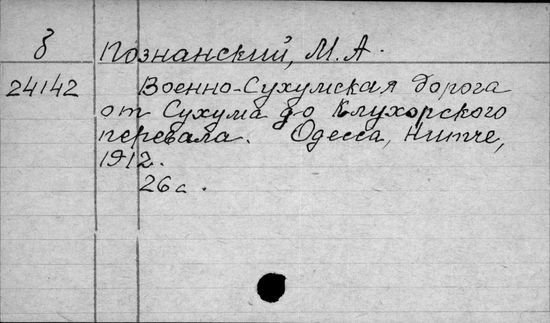 Познанский, М. А.
24142 Военно-Сухумская дорога
от Сухума до Клухорского
перевала. Одесса, Нитче,
1912.
26 с.